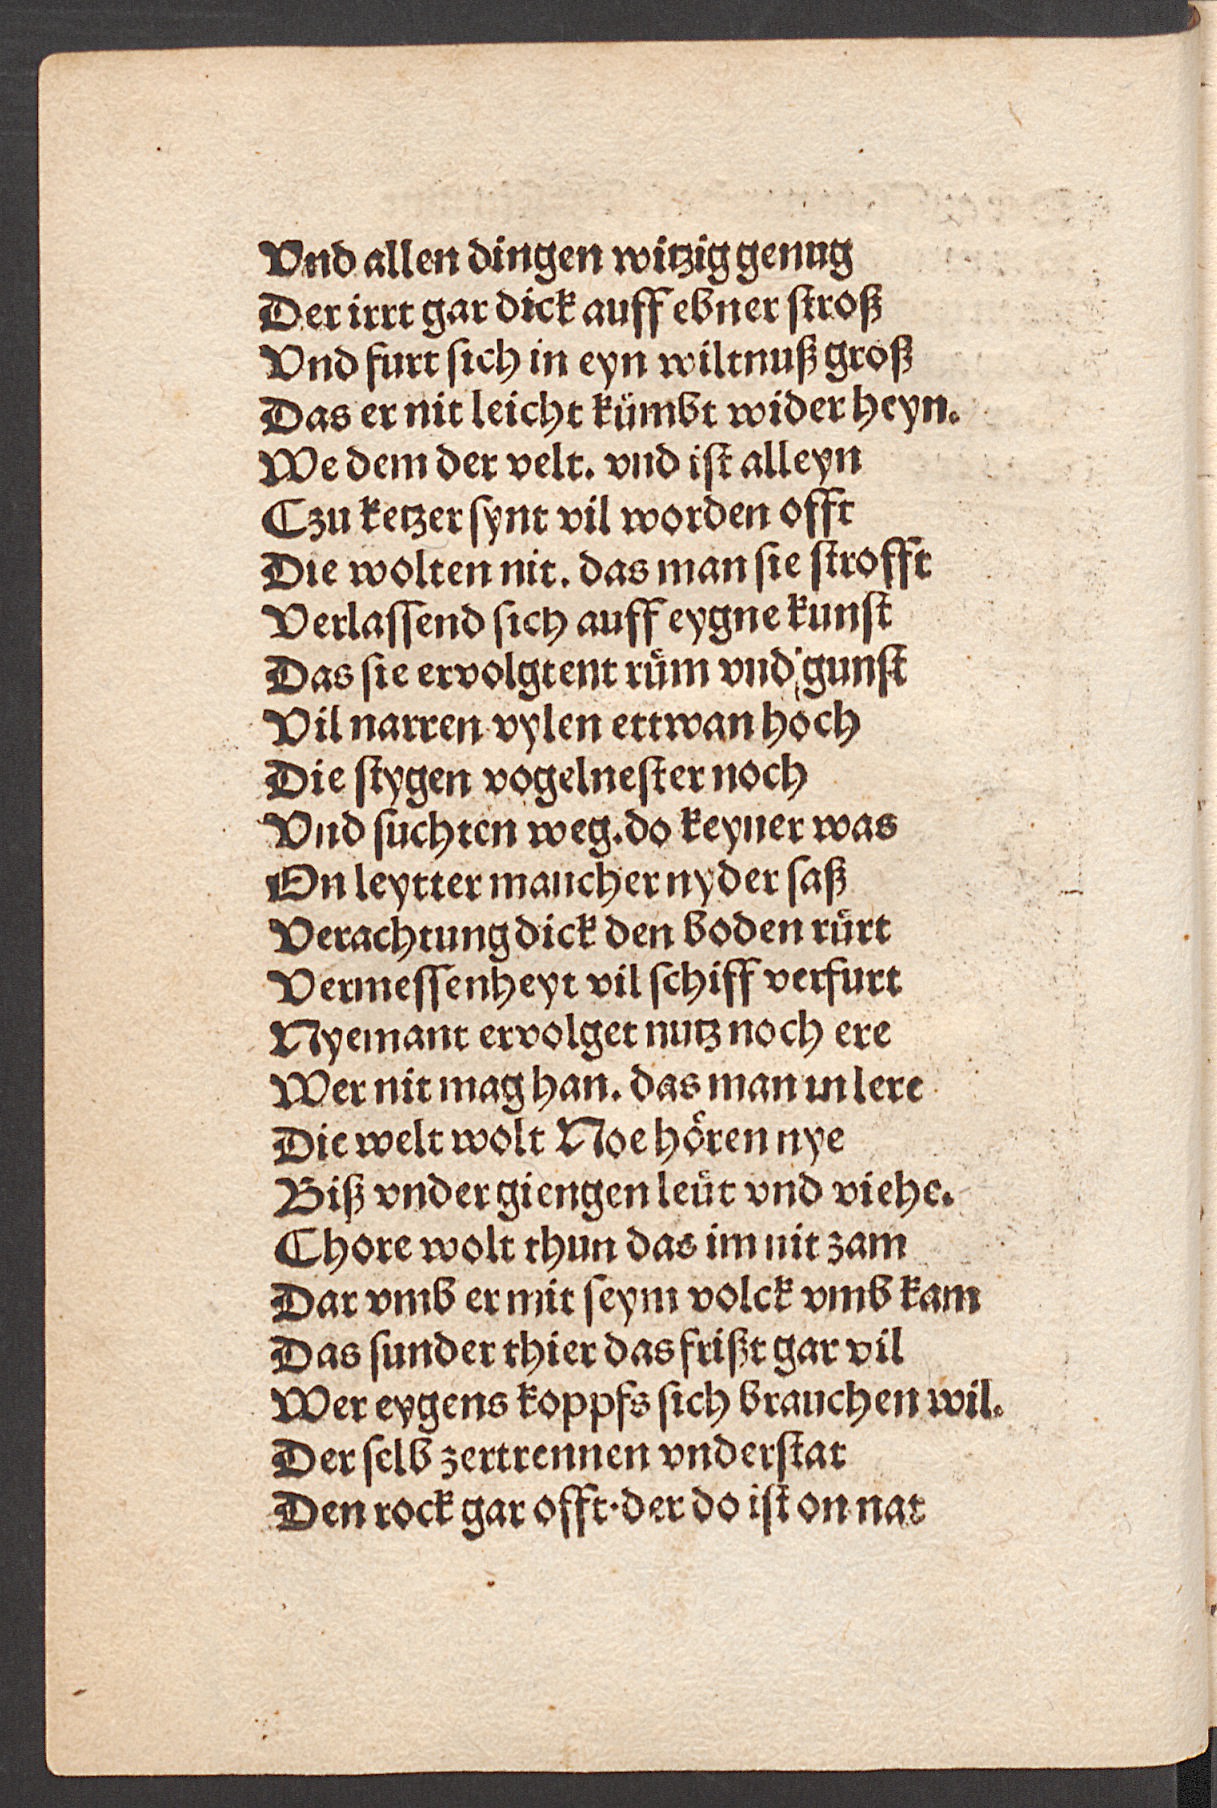 Vnd allen dingen witzig genug
Der irrt gar dick auff ebner stroß
Vnd furt sich in eyn wiltnuß groß
Das er nit leicht kümbt wider heyn.
We dem der velt. vnd ist alleyn
Czu ketzer synt vil worden offt
Die wolten nit. das man sie strofft
Verlassend sich auff eygne kunst
Das sie ervolgtent rüm vnd gunst
Vil narren vylen ettwan hoch
Die stygen vogelnester noch
Vnd suchten weg. do keyner was
On leytter mancher nyder saß
Verachtung dick den boden rürt
Vermessenheyt vil schiff verfurt
Nyemant ervolget nutz noch ere
Wer nit mag han. das man in lere
Die welt wolt Noe hören nye
Biß vnder giengen leüt vnd viehe.
Chore wolt thun das im nit zam
Dar vmb er mit seym volck vmb kam
Das sunder thier das frißt gar vil
Wer eygens koppfs sich brauchen wil.
Der selb zertrennen vnderstat
Den rock gar offt. der do ist on nat